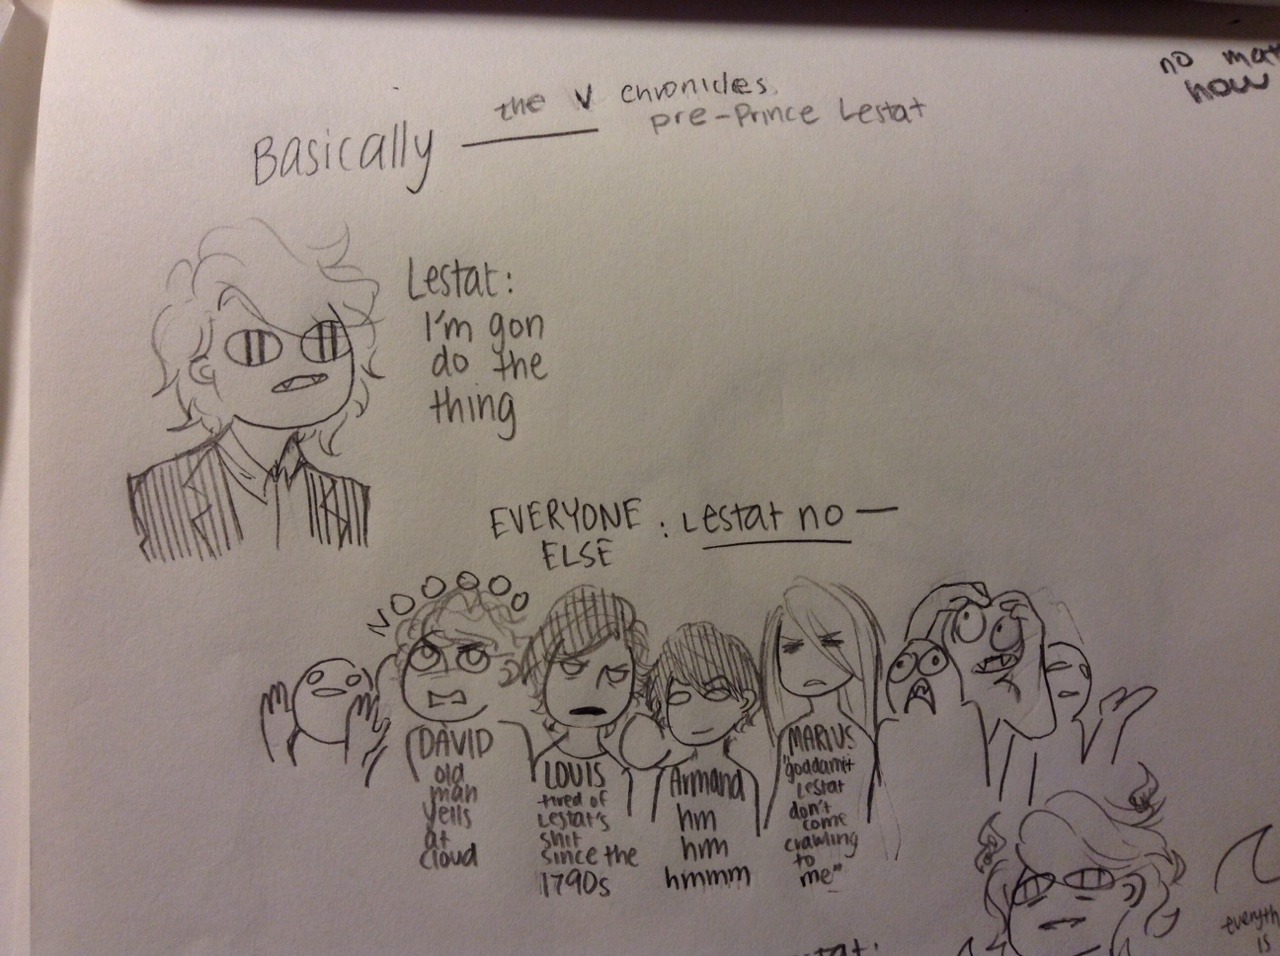 no mat
now
the V chronicles
pre-Prince Lestat
Basically
Lestat:
I'm gon
do the
thing
EVERYONE : Lestat no —
ELSE
NOOOOO
DAVID
old
man
yells
at
cloud
LOUIS
tired of
Lestat's
shit
since the
1790s
Armand
hm
hm
hmmm
MARIUS
"goddamnt
Lestat
don't
come
crawling
to
me"
everyth
is
tat: